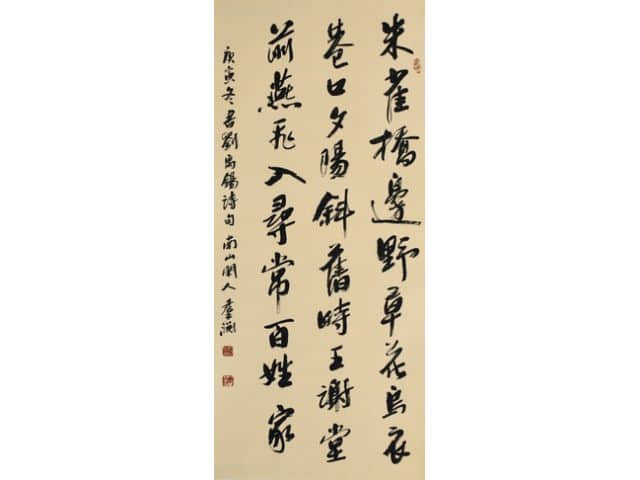 朱雀橋邊野草花烏衣
巷口夕陽斜舊時王謝堂
前燕飛入尋常百姓家
庚寅冬書劉禹錫詩句 南山閑人